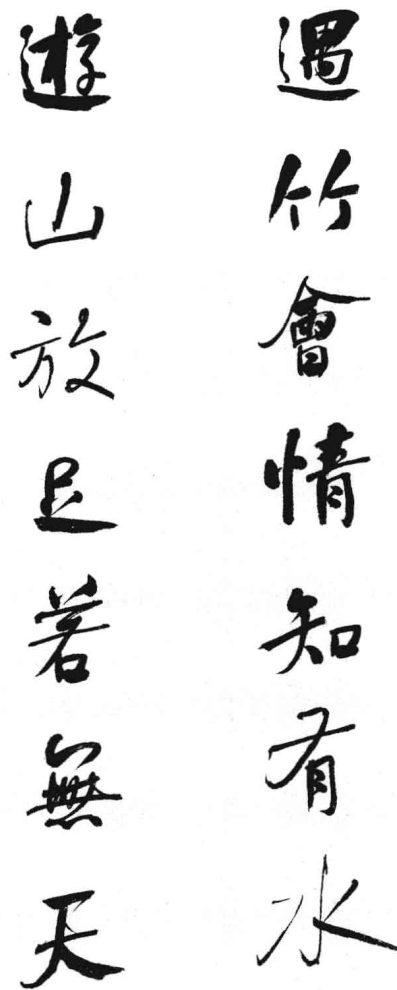 遇竹會情知有水
遊山放足若無天